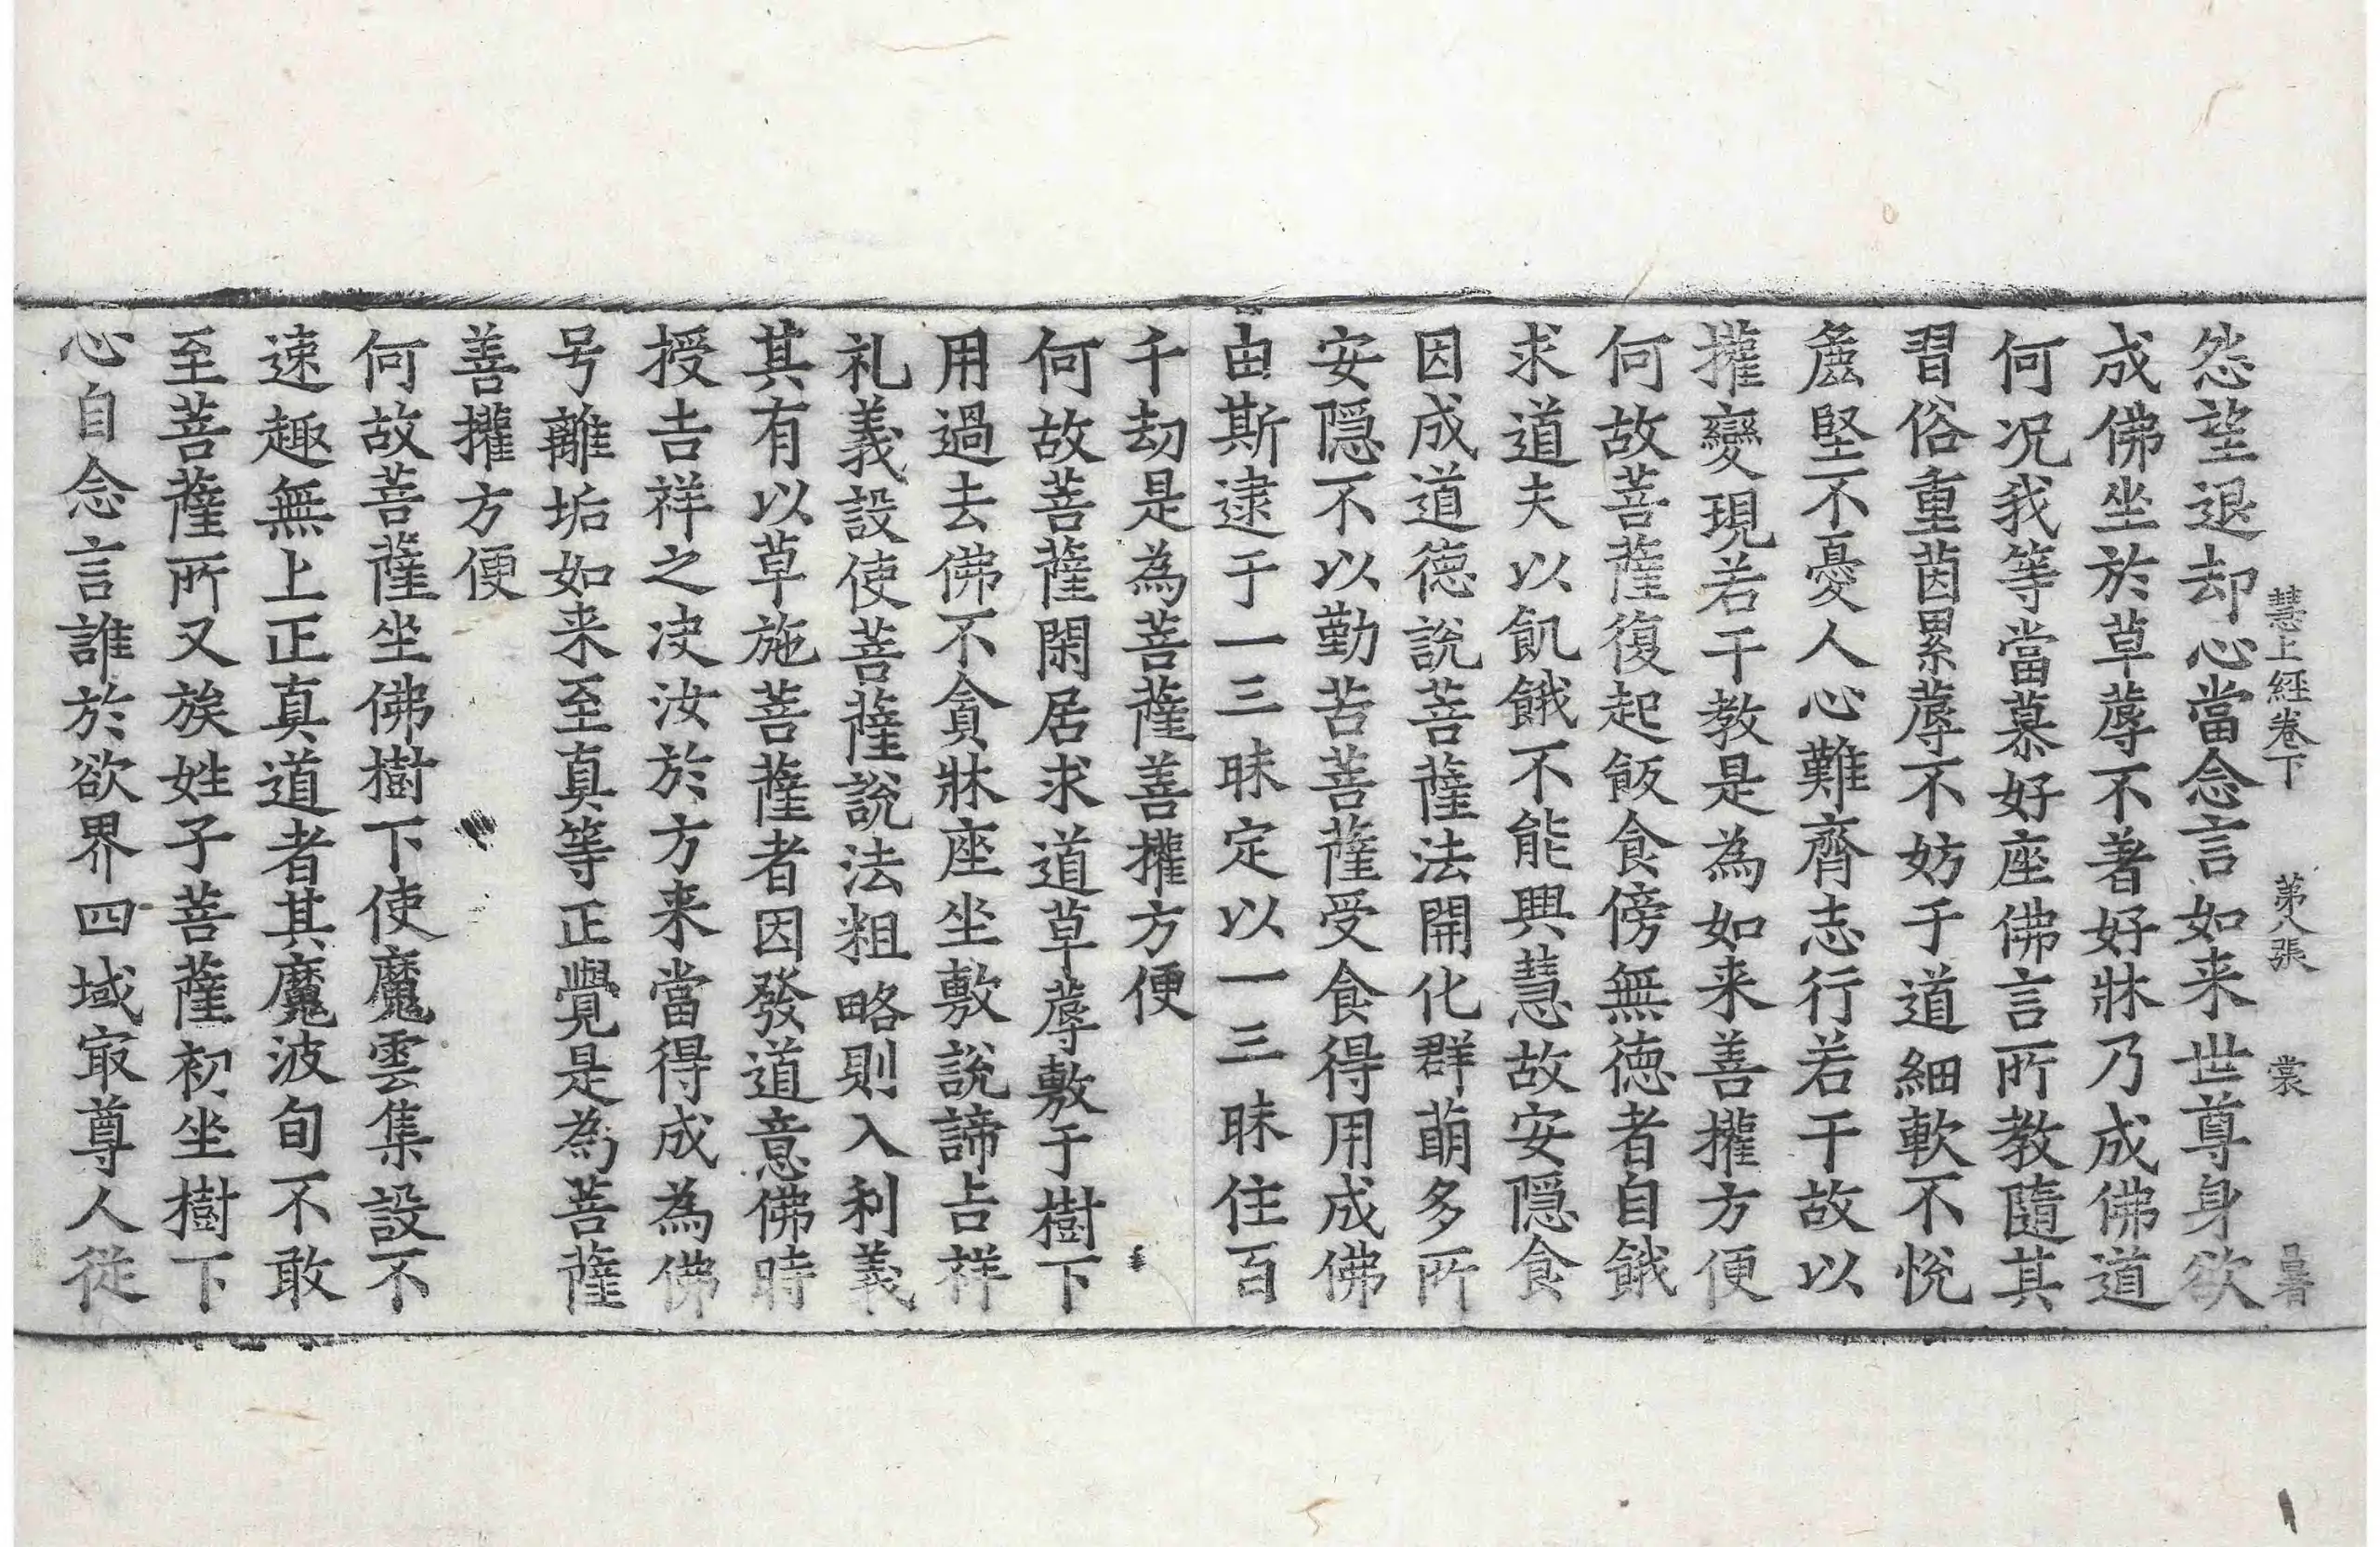 慧上經卷下 第八張 裳
怨望退却心當念言如来世尊身欲
成佛坐於草蓐不著好牀乃成佛道
何况我等當慕好座佛言所教隨其
習俗重茵累蓐不妨于道細軟不悅
麁堅不憂人心難齊志行若干故以
攉變現若干教是為如来善攉方便
何故菩薩復起飯食傍無德者自餓
求道夫以飢餓不能興慧故安隱食
因成道德說菩薩法開化群萠多所
安隱不以勤苦菩薩受食得用成佛
由斯逮于一三昧定以一三昧住百
千劫是為菩薩善攉方便
何故菩薩閑居求道草蓐敷于樹下
用過去佛不貪牀座坐敷說諦吉祥
礼義設使菩薩說法粗略則入利義
其有以草施菩薩者因發道意佛時
授吉祥之决汝於方来當得成為佛
号離垢如来至真等正覺是為菩薩
善攉方便
何故菩薩坐佛樹下使魔雲集設不
速趣無上正真道者其魔波旬不敢
至菩薩所又族姓子菩薩初坐樹下
心自念言誰於欲界四域㝡尊人從